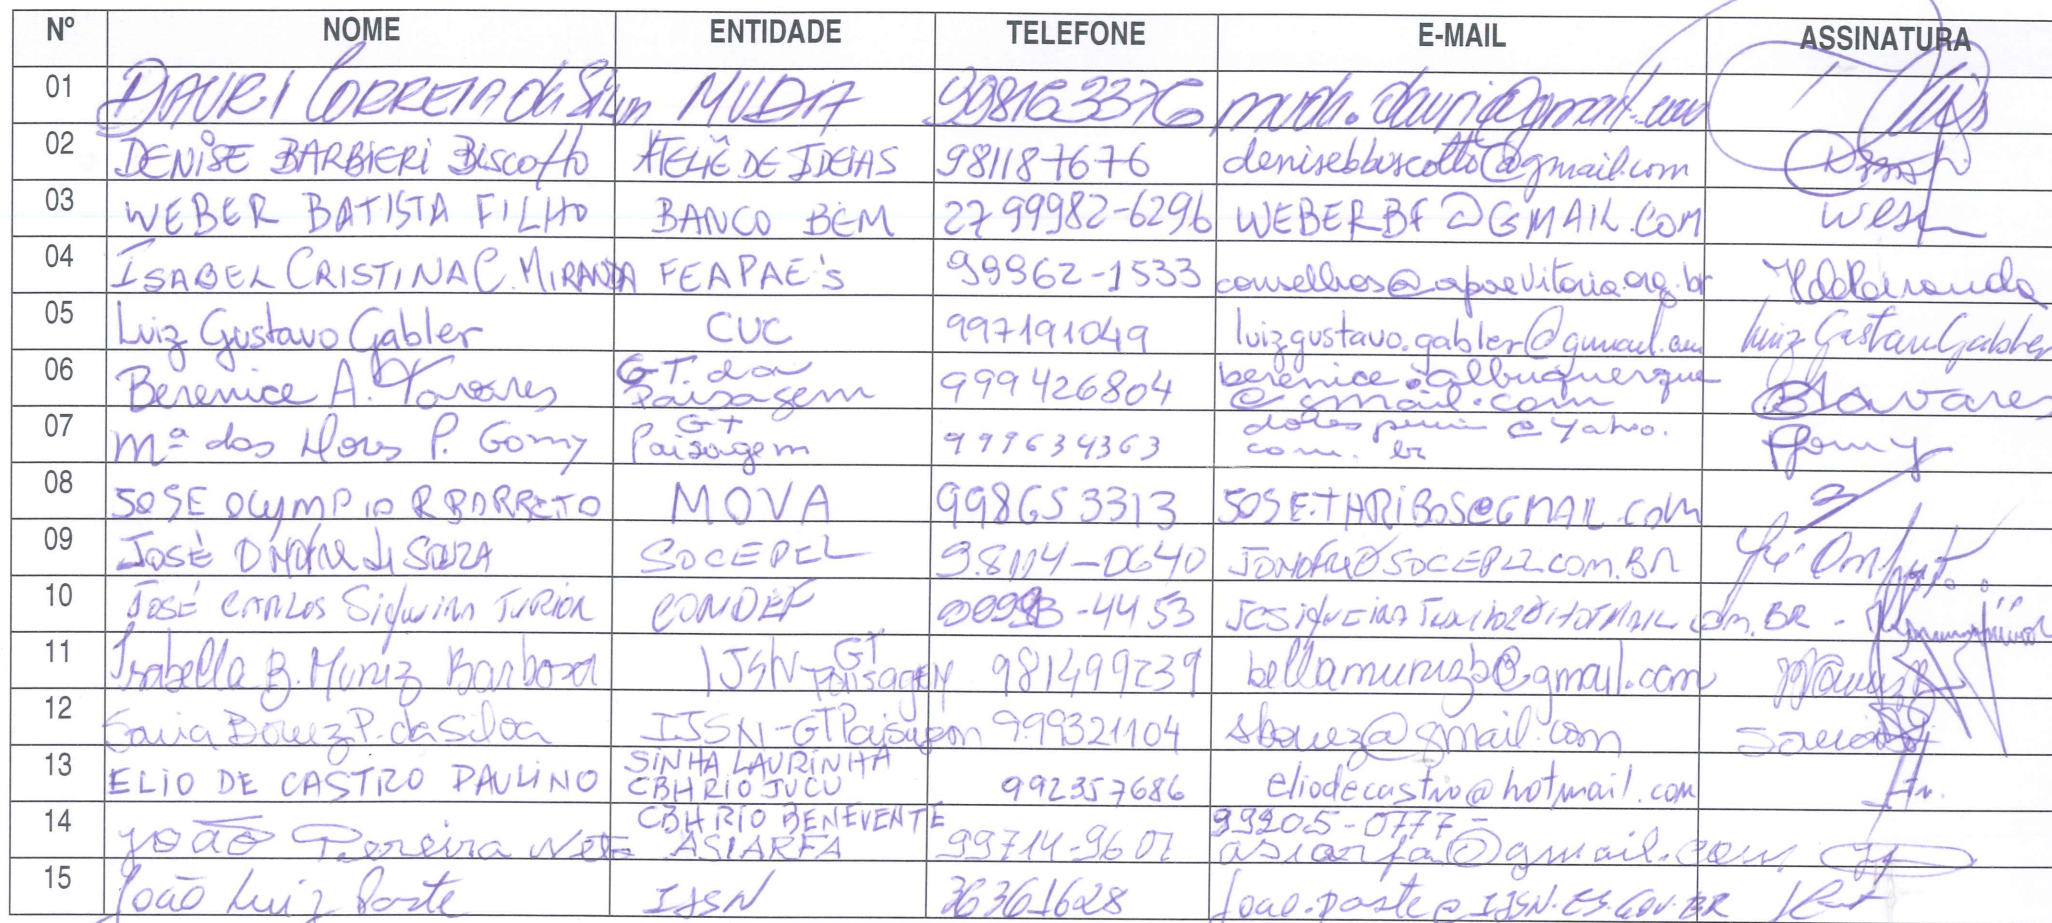 Nº NOME ENTIDADE TELEFONE E-MAIL ASSINATURA
01 DAURI CORREIA da Silva MUDA 998163376 muda.dauri@gmail.com
02 DENISE BARBIERI BISCOTTO ATELIÊ DE IDEIAS 981187676 denisebbiscotto@gmail.com
03 WEBER BATISTA FILHO BANCO BEM 27 99982-6296 WEBERBF@GMAIL.COM
04 ISABEL CRISTINA C. MIRANDA FEAPAE'S 99962-1533 conselhos@apaevitoria.org.br
05 Luiz Gustavo Gabler CUC 997191049 luizgustavo.gabler@gmail.com Luiz Gustavo Gabler
06 Berenice A. Tavares GT. da Paisagem 999426804 berenice.albuquerque@gmail.com BTavares
07 Mª das P. Gomy GT Paisagem 999634363 @yahoo.com.br
08 JOSE OLYMPIO R BARRETO MOVA 998653313 JOSETHARIBOS@GMAIL.COM
09 JOSÉ di SOUZA SOCEPEL 9.8114-0640
10 JOSÉ CARLOS Siqueira JUNIOR CONDEF -4453
11 Isabella B. Muniz Barbosa IJSN-GT Paisagem 981499239 bellamunizb@gmail.com
12 Sania Bouez P. da Silva IJSN-GTPaisagem 999321104 sbouez@gmail.com
13 ELIO DE CASTRO PAULINO SINHA LAURINHA CBH RIO JUCU 992357686 eliodecastro@hotmail.com
14 João Pereira Neto CBH RIO BENEVENTE ASIARFA 99714-9607 99205-0777- asiarfa@gmail.com
15 João Luiz Paste IJSN 36361628 joao.paste@IJSN.ES.GOV.BR